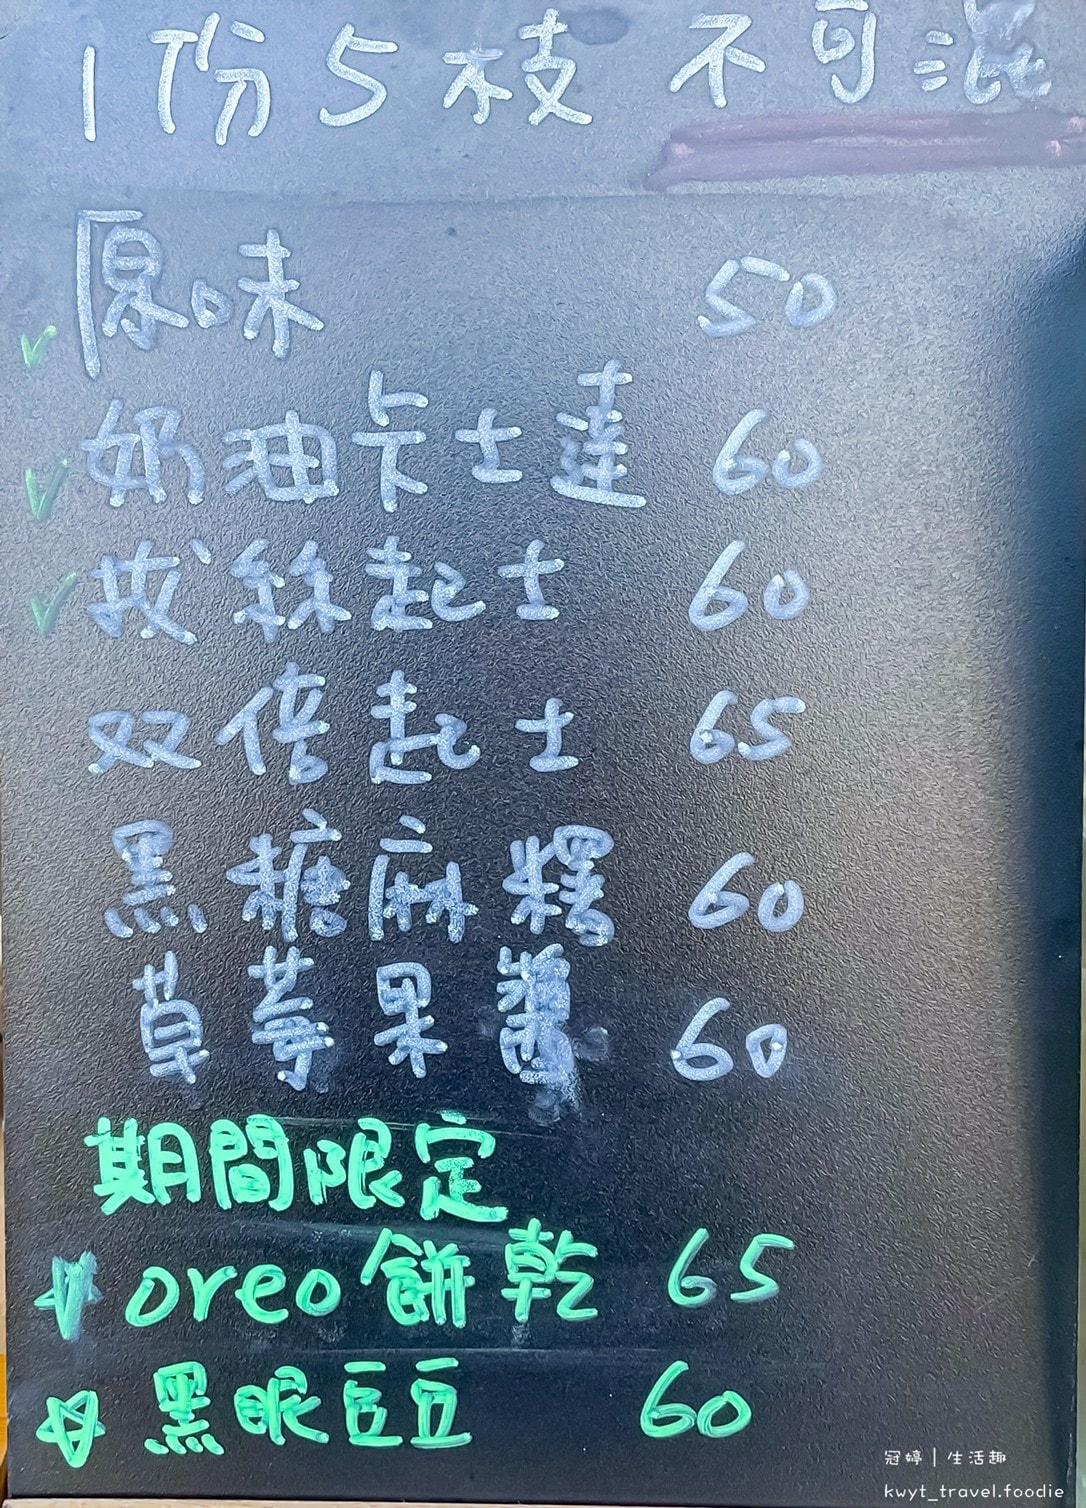 1份5枝 不可混
原味 50
奶油卡士達 60
拔絲起士 60
双倍起士 65
黑糖麻糬 60
草莓果醬 60
期間限定
oreo餅乾 65
黑眼豆豆 60
冠婷|生活趣
kwyt_travel.foodie